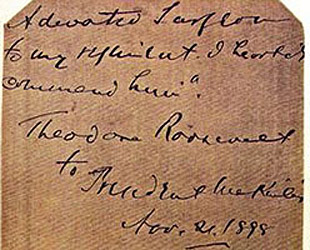 to my regiment. I heartily
commend him".
Theodore Roosevelt
to President McKinley
Nov. 21. 1898